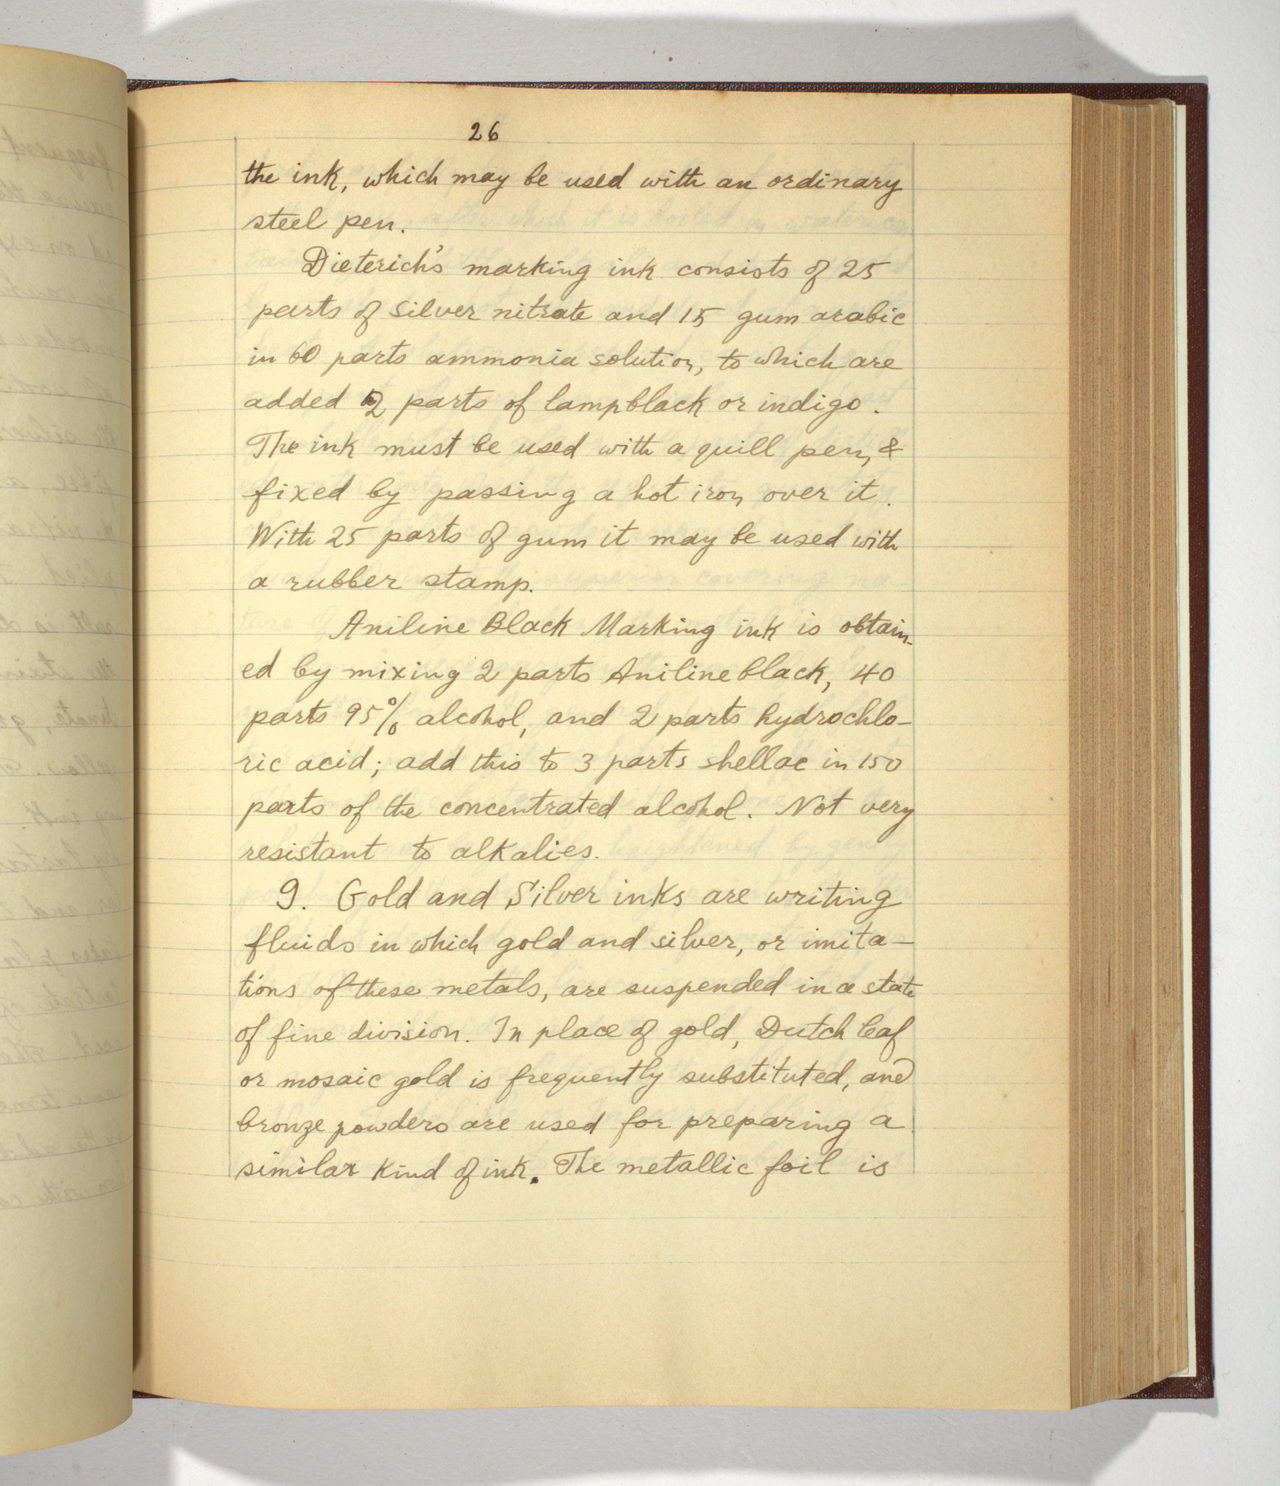 26
the ink, which may be used with an ordinary
steel pen.
Dieterich's marking ink consists of 25
parts of silver nitrate and 15 gum arabic
in 60 parts ammonia solution, to which are
added 2 parts of lampblack or indigo.
The ink must be used with a quill pen, &
fixed by passing a hot iron over it.
With 25 parts of gum it may be used with
a rubber stamp.
Aniline Black Marking ink is obtain-
ed by mixing 2 parts Aniline black, 40
parts 95% alcohol, and 2 parts hydrochlo-
ric acid; add this to 3 parts shellac in 150
parts of the concentrated alcohol. Not very
resistant to alkalies.
9. Gold and Silver inks are writing
fluids in which gold and silver, or imita-
tions of these metals, are suspended in a state
of fine division. In place of gold, Dutch leaf
or mosaic gold is frequently substituted, and
bronze powders are used for preparing a
similar kind of ink. The metallic foil is